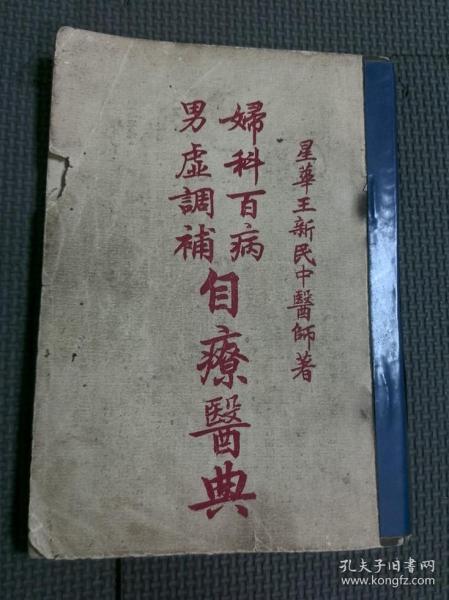 星華王新民中醫師著
婦科百病
男虛調補
自療醫典
孔夫子旧书网
www.kongfz.com